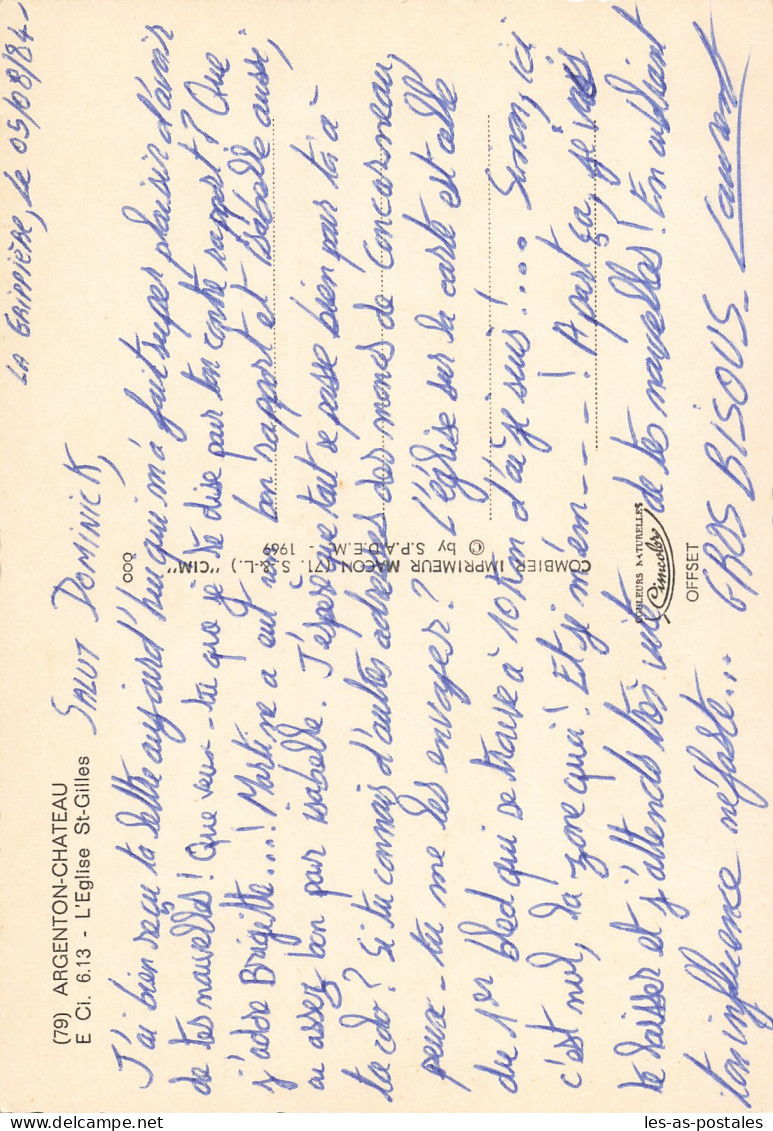 LA GRIPPIÈRE, le 05/08/84.
(79) ARGENTON-CHATEAU
E Ci. 6.13 - L'Eglise St-Gilles
SALUT DOMINICK,
J'ai bien reçu ta lettre aujourd'hui qui m'a fait super plaisir d'avoir
de tes nouvelles! Que veux-tu que je te dise par ton contre rapport? Que
j'adore Brigitte...! Martine a eut un bon rapport et isabelle aussi,
ou assez bon pour isabelle. J'espère que tout se passe bien par là à
ta colo? Si tu connais d'autres adresses des monos de Concarneau,
peux-tu me les envoyer? L'église sur la carte est celle
du 1er bled qui se trouve à 10 km d'où je suis!... Sinon, ici
c'est nul, la zone quoi! Et j'y m'em----! A part ça, je vais
te laisser et j'attends très vite de tes nouvelles! En oubliant
ton influence néfaste... GROS BISOUS- Laurent
COMBIER IMPRIMEUR MACON (71. S.-&-L.) "CIM"
© by S.P.A.D.E.M. - 1969
COULEURS NATURELLES
Cimcolor
OFFSET
les-as-postales